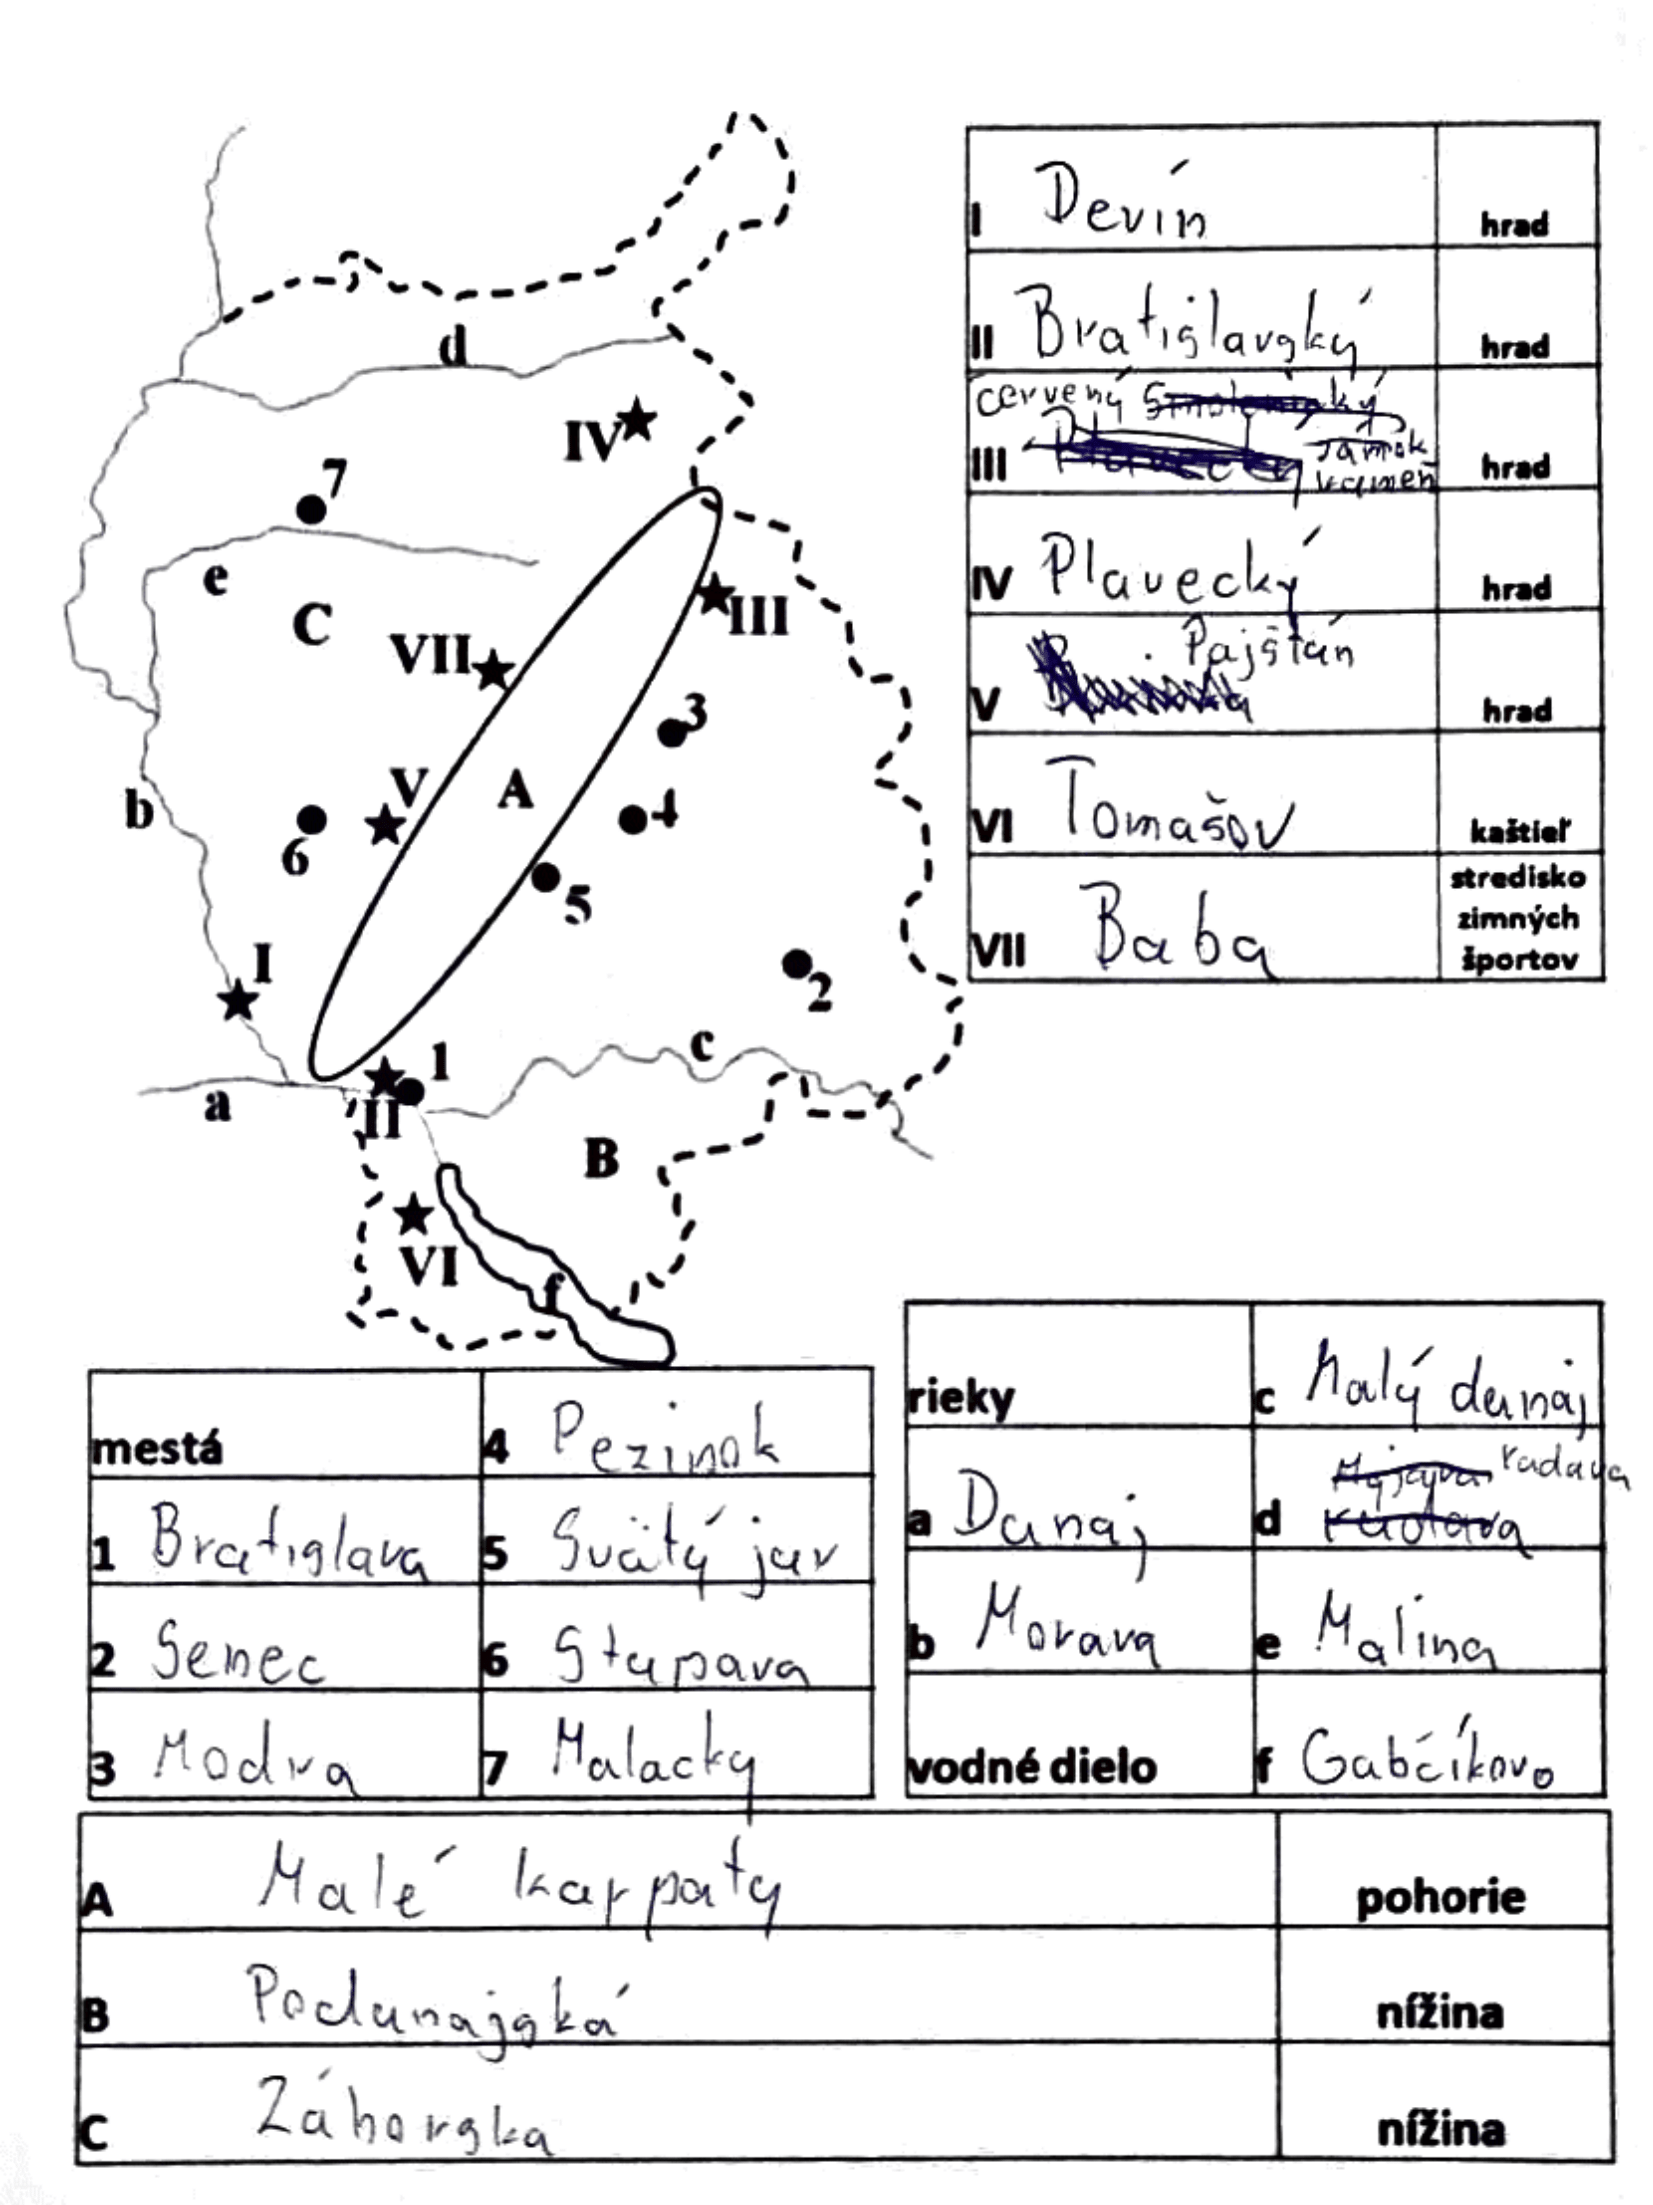 d
IV
7
e
C
VII
III
3
V
A
b
4
6
5
I
2
c
1
a
II
B
VI
f
I Devín hrad
II Bratislavský hrad
červený
III zámok kameň hrad
IV Plavecký hrad
Pajštán
V hrad
VI Tomašov kaštieľ
VII Baba stredisko zimných športov
mestá 4 Pezinok
1 Bratislava 5 Svätý jur
2 Senec 6 Stupava
3 Modra 7 Malacky
rieky c Malý dunaj
a Dunaj d Myjava rudava
rudava
b Morava e Malina
vodné dielo f Gabčíkovo
A Malé karpaty pohorie
B Podunajská nížina
C Záhorska nížina